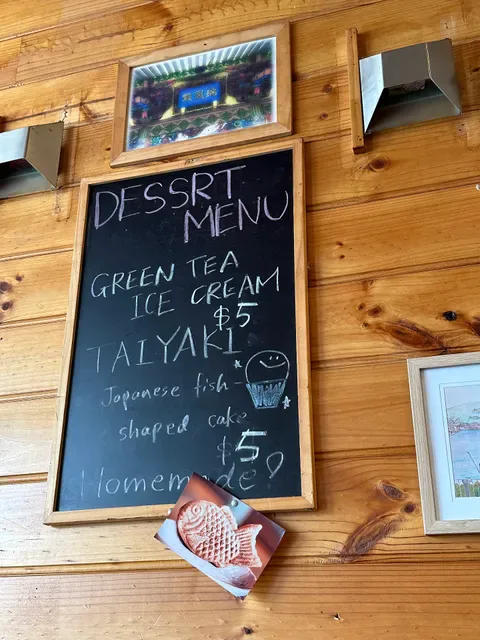 DESSRT
MENU
GREEN TEA
ICE CREAM
$5
TAIYAKI
Japanese fish
shaped cake
$5
Homemade!